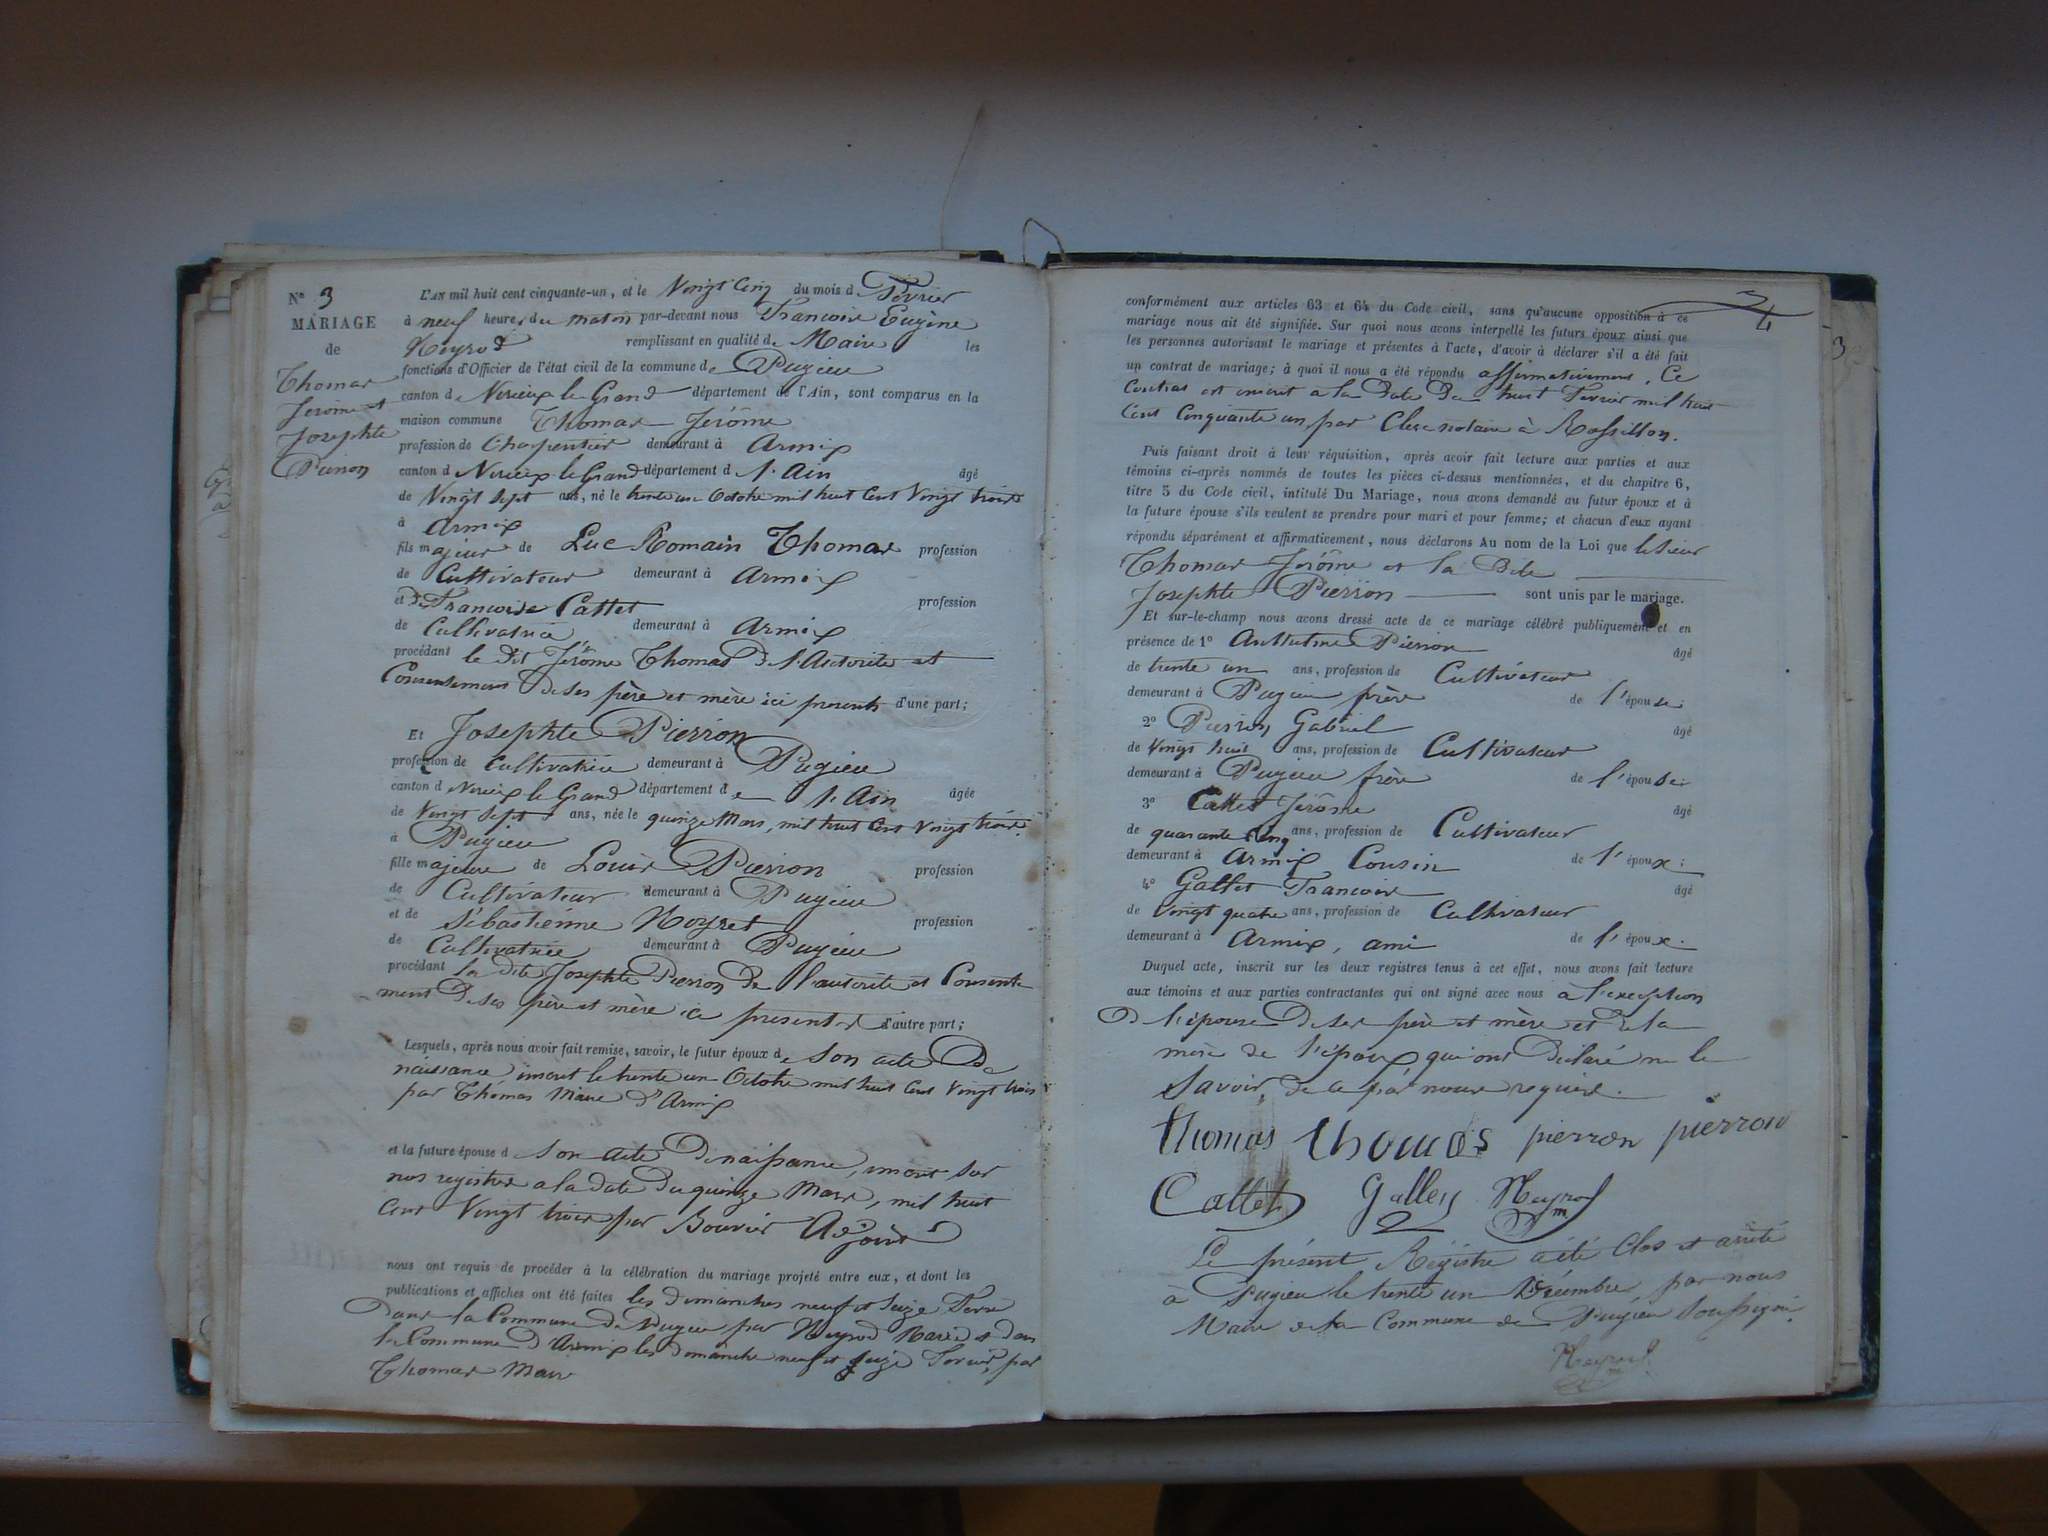 N° 3
MARIAGE
de
Thomas
Jérôme et
Josephte
Pierron
L'AN mil huit cent cinquante-un, et le Vingt Cinq du mois d Février
à neuf heures du matin par-devant nous Francoise Eugène
Heyrod remplissant en qualité de Maire les
fonctions d'Officier de l'état civil de la commune de Pugieu
canton de Virieux le Grand département de l'Ain, sont comparus en la
maison commune Thomas Jérôme
profession de Charpentier demeurant à Armix
canton d Virieux le Grand département d l'Ain âgé
de Vingt Sept ans, né le trente un Octobre mil huit Cent Vingt trois
à Armix
fils majeur de Luc Romain Thomas profession
de Cultivateur demeurant à Armix
et de Francoise Cattet profession
de Cultivatrice demeurant à Armix
procédant le dit Jérôme Thomas de l'Autorité et
Consentement de ses père et mère ici presents d'une part;
Et Josephte Pierron
profession de Cultivatrice demeurant à Pugieu
canton d Virieux le Grand département de l'Ain âgée
de Vingt Sept ans, née le quinze Mars, mil huit Cent Vingt trois
à Pugieu
fille majeure de Louis Pierron profession
de Cultivateur demeurant à Pugieu
et de Sébastienne Noyret profession
de Cultivatrice demeurant à Pugieu
procédant la dite Josephte Pierron de l'autorité et Consente
ment de ses père et mère ici presents d'autre part;
Lesquels, après nous avoir fait remise, savoir, le futur époux de Son acte De
naissance inscrit le trente un Octobre mil huit Cent Vingt trois
par Thomas Maire d'Armix
et la future épouse d Son acte De naissance, inscrit sur
nos registres a la date du quinze Mars, mil huit
Cent Vingt trois par Bouvier Adjoint
nous ont requis de procéder à la célébration du mariage projeté entre eux, et dont les
publications et affiches ont été faites les dimanches neuf et Seize Fevrier
Dans la Commune de Pugieu par Heyrod Maire et dans
la Commune d'Armix les dimanche neuf et Seize Fevrier, par
Thomas Maire
4
3
conformément aux articles 63 et 64 du Code civil, sans qu'aucune opposition à ce
mariage nous ait été signifiée. Sur quoi nous avons interpellé les futurs époux ainsi que
les personnes autorisant le mariage et présentes à l'acte, d'avoir à déclarer s'il a été fait
un contrat de mariage; à quoi il nous a été répondu affirmativement. Ce
Contrat est inscrit a la Date Du huit Fevrier mil huit
Cent Cinquante un, par Clerc notaire à Rossillon.
Puis faisant droit à leur réquisition, après avoir fait lecture aux parties et aux
témoins ci-après nommés de toutes les pièces ci-dessus mentionnées, et du chapitre 6,
titre 5 du Code civil, intitulé Du Mariage, nous avons demandé au futur époux et à
la future épouse s'ils veulent se prendre pour mari et pour femme; et chacun d'eux ayant
répondu séparément et affirmativement, nous déclarons Au nom de la Loi que le Sieur
Thomas Jérôme et la Dite
Josephte Pierron sont unis par le mariage.
Et sur-le-champ nous avons dressé acte de ce mariage célébré publiquement et en
présence de 1° Anthelme Pierron âgé
de trente un ans, profession de Cultivateur
demeurant à Pugieu frère de l'épouse
2° Pierron Gabriel âgé
de Vingt huit ans, profession de Cultivateur
demeurant à Pugieu frère de l'épouse
3° Cattet Jérôme âgé
de quarante Cinq ans, profession de Cultivateur
demeurant à Armix Cousin de l'époux;
4° Gallet Francois âgé
de Vingt quatre ans, profession de Cultivateur
demeurant à Armix, ami de l'époux.
Duquel acte, inscrit sur les deux registres tenus à cet effet, nous avons fait lecture
aux témoins et aux parties contractantes qui ont signé avec nous a l'exception
De l'épouse De ses père et mère et de la
mère de l'époux qui ont Déclaré ne le
Savoir, de ce par nous requis.
Thomas thomas pierron pierron
Cattet Galley Heyrod
m
Le présent Régistre a été Clos et arrêté
à Pugieu le trente un Décembre, par nous
Maire de la Commune de Pugieu Soussigné.
Heyrod